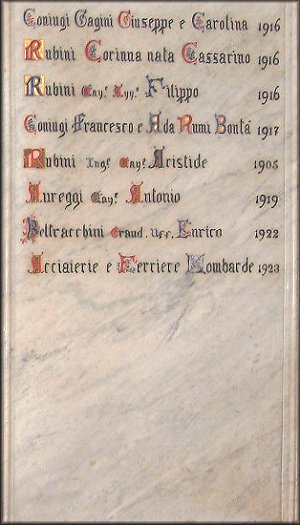 Coniugi Gagini Giuseppe e Carolina 1916
Rubini Corinna nata Cassarino 1916
Rubini Cav. Avv. Filippo 1916
Coniugi Francesco e Ada Rumi Bontá 1917
Rubini Ing. Cav. Aristide 1905
Aureggi Cav. Antonio 1919
Beltracchini Grand. Uff. Enrico 1922
Acciaierie e Ferriere Lombarde 1923